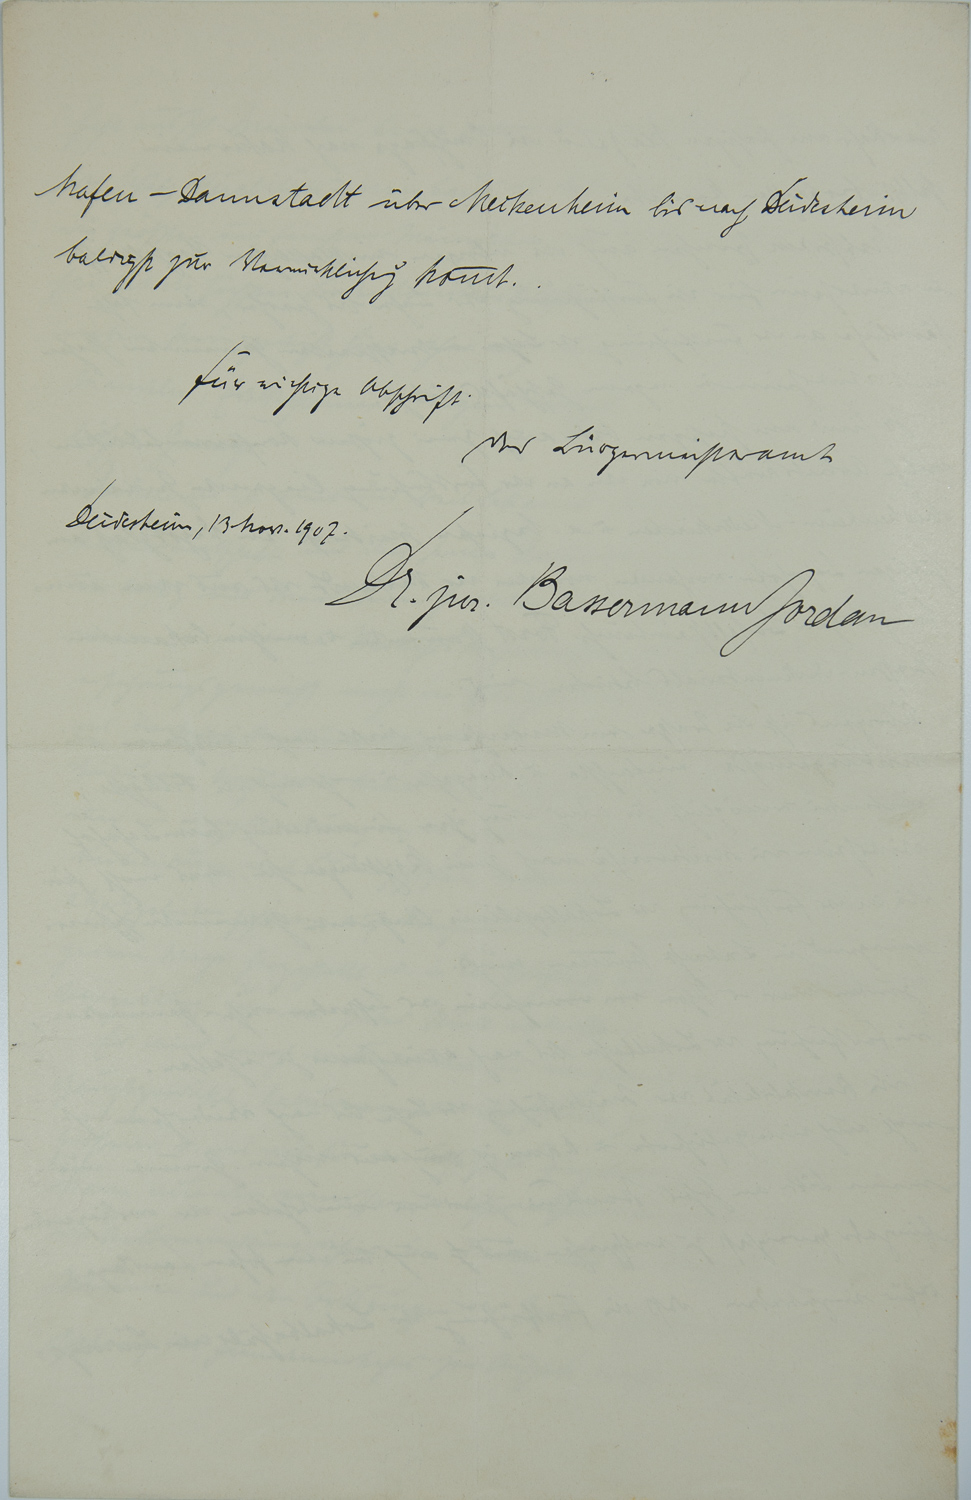 hafen – Dannstadt über Meckenheim bis nach Deidesheim
baldigst zur Verwirklichung kom̄t.
Für richtige Abschrift.
Das Bürgermeisteramt
Deidesheim, 13. Nov. 1907.
Dr. jur. Bassermann Jordan